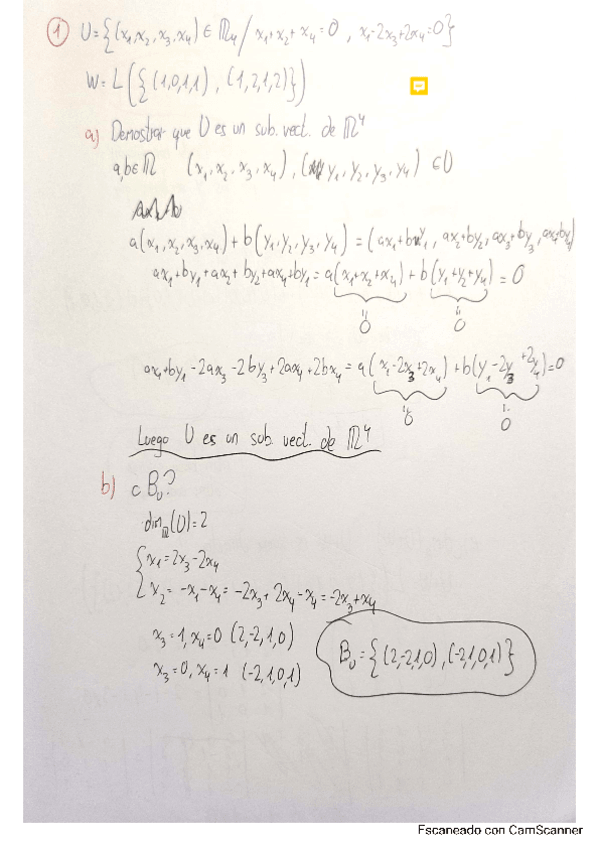 1 U={(x₁,x₂,x₃,x₄)∈ℝ₄ / x₁+x₂+x₄=0 , x₁-2x₃+2x₄=0}
W= L({(1,0,1,1) , (1,2,1,2)})
a) Demostrar que U es un sub. vect. de ℝ⁴
a,b∈ℝ (x₁,x₂,x₃,x₄),(y₁,y₂,y₃,y₄) ∈U
a(x₁,x₂,x₃,x₄)+b(y₁,y₂,y₃,y₄)=(ax₁+by₁, ax₂+by₂, ax₃+by₃, ax₄+by₄)
ax₁+by₁+ax₂+by₂+ax₄+by₁=a(x₁+x₂+x₄)+b(y₁+y₂+y₄)=0
0 0
ax₁+by₁-2ax₃-2by₃+2ax₄+2bx₄=a(x₁-2x₃+2x₄)+b(y₁-2y₃+2y₄)=0
0 0
Luego U es un sub. vect. de ℝ⁴
b) ¿Bᵤ?
dim_ℝ(U)=2
x₁=2x₃-2x₄
x₂=-x₁-x₄=-2x₃+2x₄-x₄=-2x₃+x₄
x₃=1,x₄=0 (2,-2,1,0)
x₃=0,x₄=1 (-2,1,0,1)
Bᵤ={(2,-2,1,0),(-2,1,0,1)}
Escaneado con CamScanner